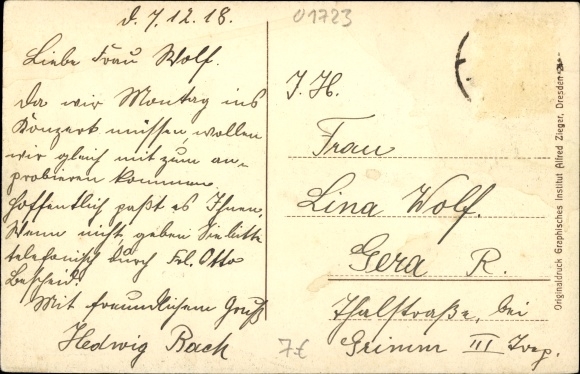 d. 7.12.18.
01723
Liebe Frau Wolf.
Da wir Montag ins
Konzert müssen, wollen
wir gleich mit zum an-
probieren kommen
hoffentlich paßt es Ihnen.
Wenn nicht, geben Sie bitte
telefonisch durch Frl. Otto
Bescheid.
Mit freundlichem Gruß
Hedwig Rach
7€
I. H.
Frau
Lina Wolf.
Gera R.
Thalstraße, bei
Grimm III Trep.
Originaldruck Graphisches Institut Alfred Zieger, Dresden-A.